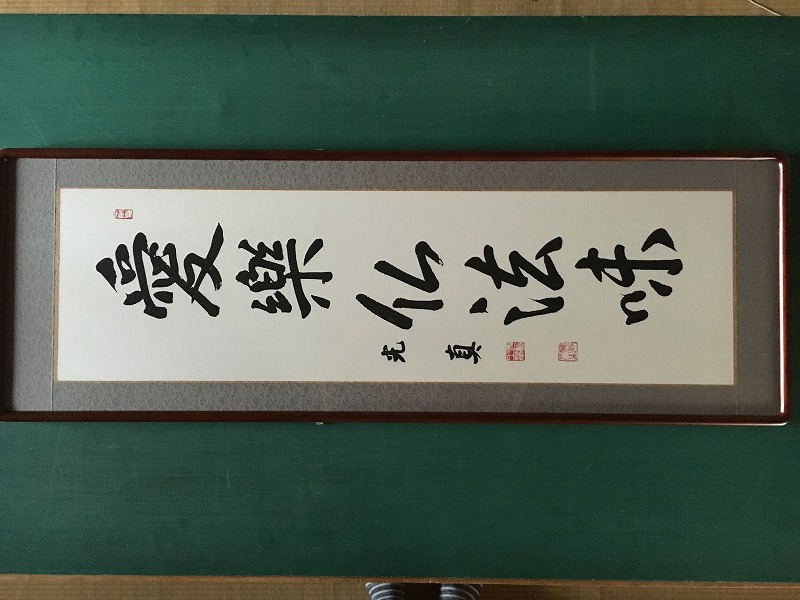 愛樂仏法味
光真